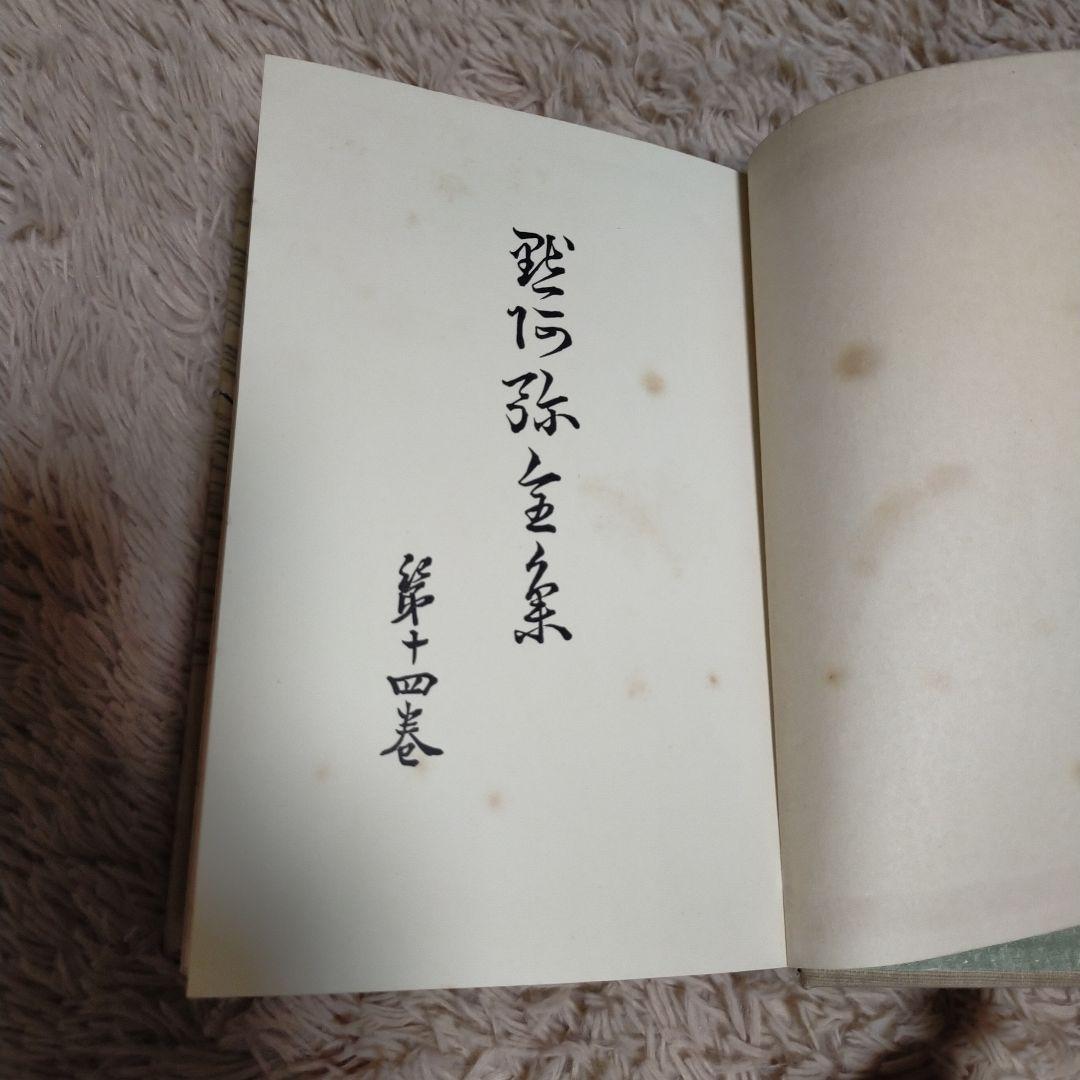 黙阿弥全集
第十四巻